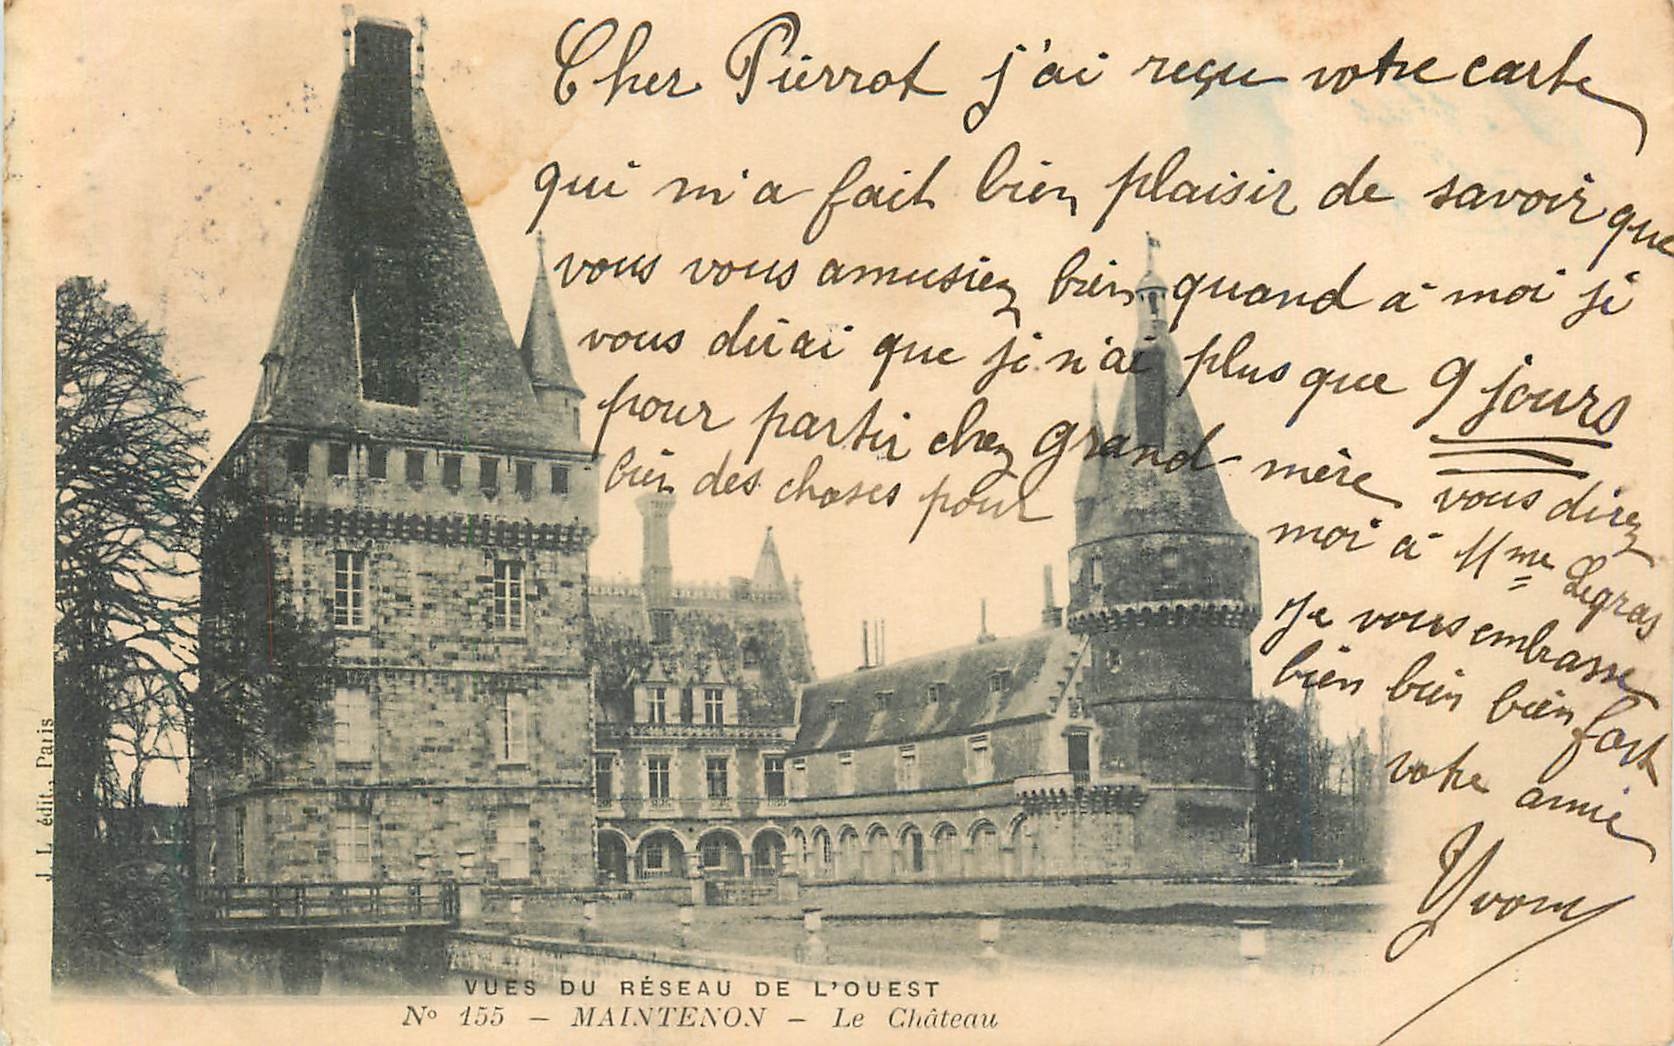 Cher Pierrot j'ai reçu votre carte
qui m'a fait bien plaisir de savoir que
vous vous amusiez bien quand à moi je
vous dirai que je n'ai plus que 9 jours
pour partir chez grand-mère vous direz
bien des choses pour moi à Mme Legras
Je vous embrasse
bien bien bien fort
votre amie
Yvonne
J. L. édit., Paris
VUES DU RÉSEAU DE L'OUEST
No 155 — MAINTENON — Le Château